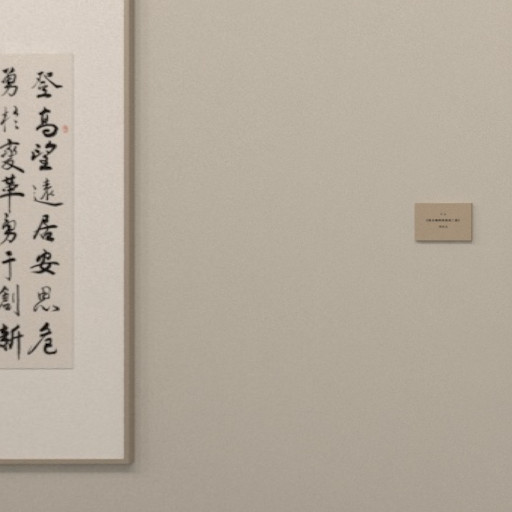 登高望遠居安思危
勇於變革勇于創新